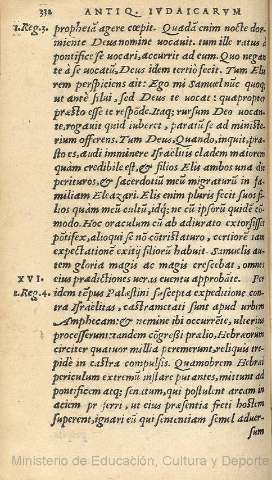 332 ANTIQ. IVDAICARVM
1.Reg.3. prophetã agere cœpit. Quadã enim nocte dor-
miente Deus nomine uocauit. tum ille ratus à
pontifice se uocari, accurrit ad eum. Quo negan-
te à se uocatũ, Deus idem tertiò fecit. Tum Eli
rem perspiciens ait: Ego mi Samuel nũc quoq;
ut ante silui, sed Deus te uocat: quapropter
præsto esse te respõde. Itaq; rursum Deo uocan-
te, rogauit quid iuberet, paratũ se ad ministe-
rium offerens. Tum Deus, Quando, inquit, præ-
sto es, audi imminere Israelitis cladem maiorem
quàm credibile est, & filios Elis ambos una die
perituros, & sacerdotiũ meũ migraturũ in fa-
miliam Eleazari. Elis enim pluris fecit suos fi-
lios quàm meũ cultũ, idq; ne cũ ipsorũ quidẽ cõ-
modo. Hoc oraculum cũ ab adiurato extorsisset
põtifex, alioqui se nõ cõtristaturo, certiorẽ iam
expectationẽ exitij filiorũ habuit. Samuelis au-
tem gloria magis ac magis crescebat, omni
XVI. eius prædictiones ueras euentu approbãte. Per
1.Reg.4. idem tẽpus Palæstini suscepta expeditione con-
tra Israelitas, castrametati sunt apud urbem
Amphecam: & nemine ibi occurrẽte, ulterius
processerunt: tandem cõgressi prælio, Hebræorum
circiter quatuor millia peremerunt, reliquis tre-
pidè in castra compulsis. Quamobrem Hebræi
periculum extremũ instare putantes, mittunt ad
pontificem atq; senatum, qui postulent arcam in
aciem proferri, ut eius præsentia freti hostem
superent, ignari eũ qui sententiam semel aduer-
sum
Ministerio de Educación, Cultura y Deporte